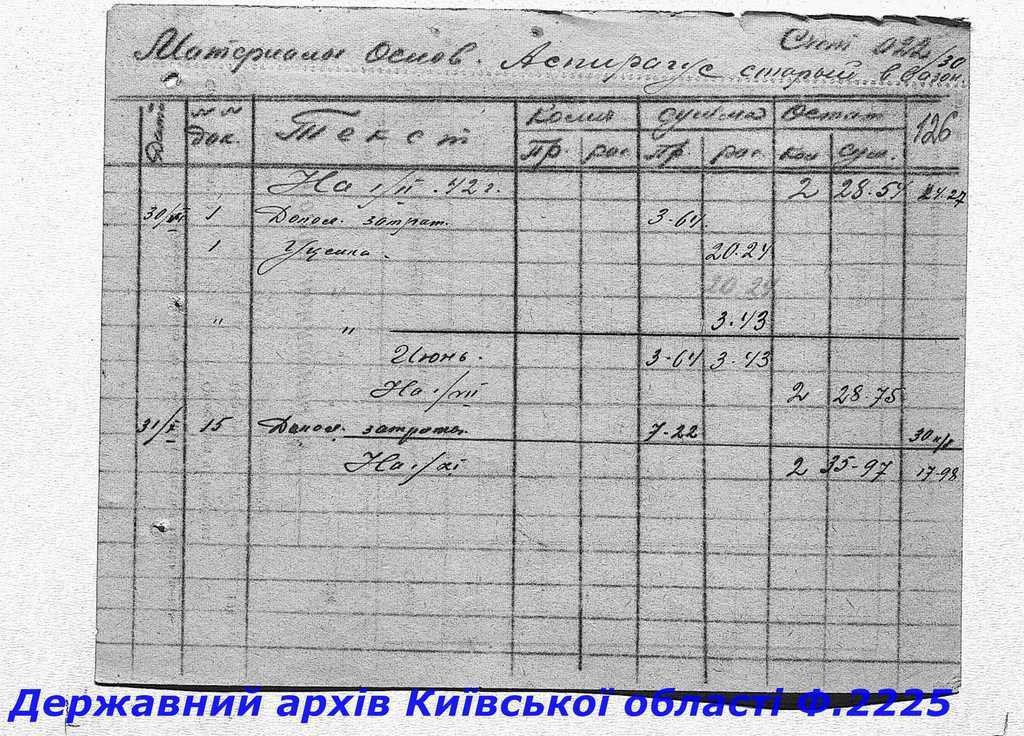 Счет 022/30
Материалы Основ. Аспарагус старый в вазон.
Дата №№ док. Текст Колич Сумма Остат 126
Пр. рас. Пр. рас. Кол Сум.
На 1/VI 42 г. 2 28-54
30/VI 1 Допол. затрат. 3-64
1 Уценка. 20-24
20-24
" " 3-43
Июнь. 3-64 3-43
На 1/VII 2 28-75
31/X 15 Допол. затраты 7-22
На 1/XI 2 35-97 17-98
Державний архів Київської області Ф.2225